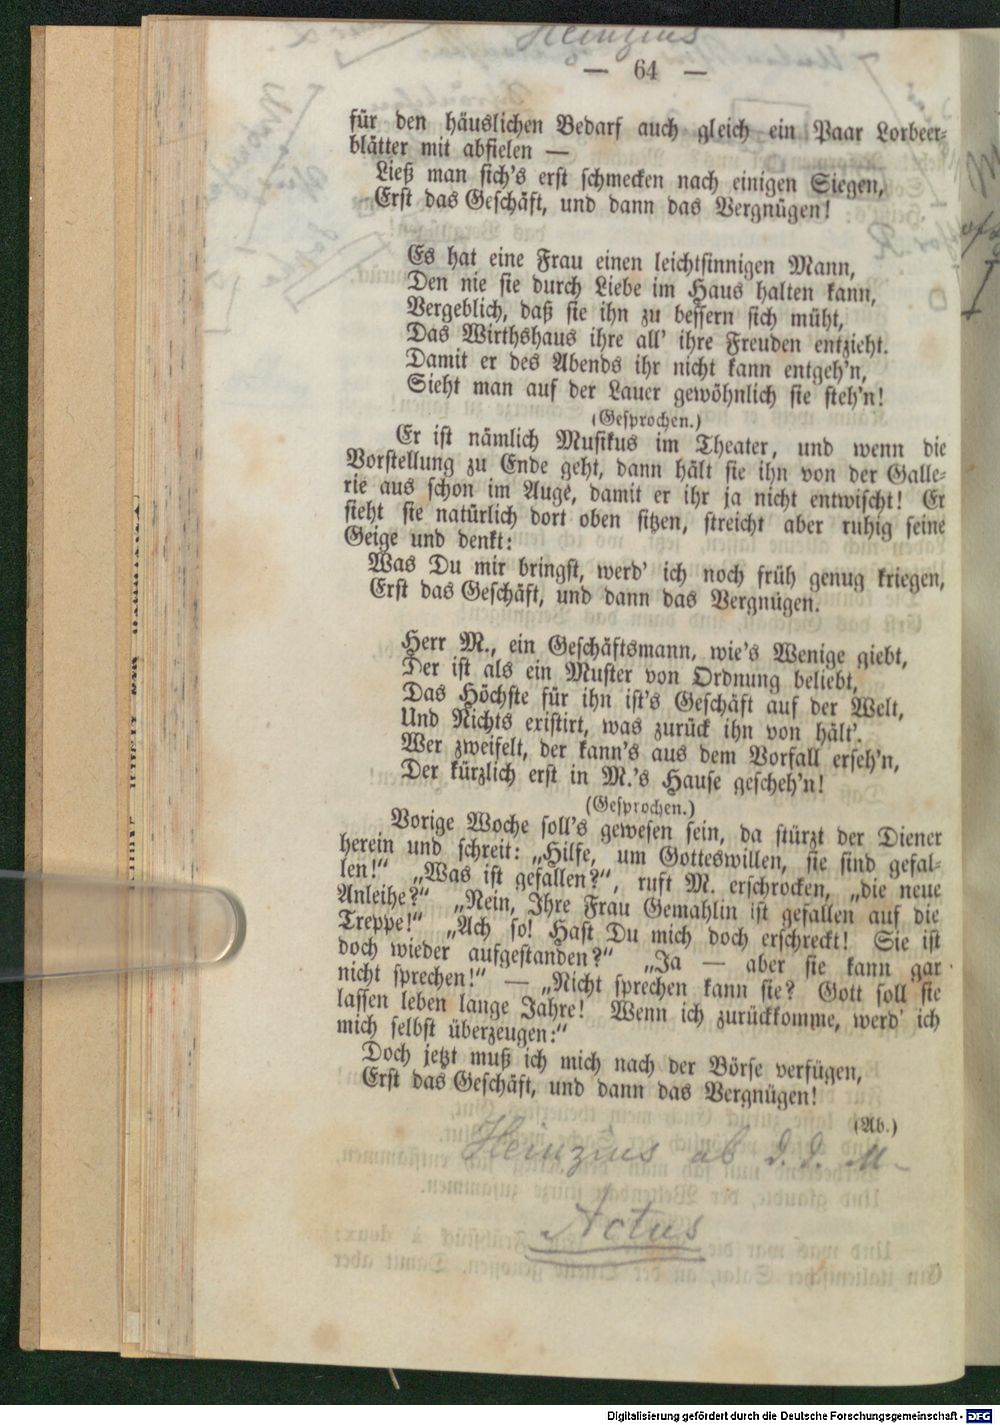 Heinzius
— 64 —
für den häuslichen Bedarf auch gleich ein Paar Lorbeer-
blätter mit abfielen —
Ließ man sich's erst schmecken nach einigen Siegen,
Erst das Geschäft, und dann das Vergnügen!
Es hat eine Frau einen leichtsinnigen Mann,
Den nie sie durch Liebe im Haus halten kann,
Vergeblich, daß sie ihn zu bessern sich müht,
Das Wirthshaus ihre all' ihre Freuden entzieht.
Damit er des Abends ihr nicht kann entgeh'n,
Sieht man auf der Lauer gewöhnlich sie steh'n!
(Gesprochen.)
Er ist nämlich Musikus im Theater, und wenn die
Vorstellung zu Ende geht, dann hält sie ihn von der Galle-
rie aus schon im Auge, damit er ihr ja nicht entwischt! Er
sieht sie natürlich dort oben sitzen, streicht aber ruhig seine
Geige und denkt:
Was Du mir bringst, werd' ich noch früh genug kriegen,
Erst das Geschäft, und dann das Vergnügen.
Herr M., ein Geschäftsmann, wie's Wenige giebt,
Der ist als ein Muster von Ordnung beliebt,
Das Höchste für ihn ist's Geschäft auf der Welt,
Und Nichts existirt, was zurück ihn von hält'.
Wer zweifelt, der kann's aus dem Vorfall erseh'n,
Der kürzlich erst in M.'s Hause gescheh'n!
(Gesprochen.)
Vorige Woche soll's gewesen sein, da stürzt der Diener
herein und schreit: „Hilfe, um Gotteswillen, sie sind gefal-
len!“ „Was ist gefallen?“, ruft M. erschrocken, „die neue
Anleihe?“ „Nein, Ihre Frau Gemahlin ist gefallen auf die
Treppe!“ „Ach so! Hast Du mich doch erschreckt! Sie ist
doch wieder aufgestanden?“ „Ja — aber sie kann gar
nicht sprechen!“ — „Nicht sprechen kann sie? Gott soll sie
lassen leben lange Jahre! Wenn ich zurückkomme, werd' ich
mich selbst überzeugen:“
Doch jetzt muß ich mich nach der Börse verfügen,
Erst das Geschäft, und dann das Vergnügen!
(Ab.)
Heinzius ab d. d. M.
Actus
Digitalisierung gefördert durch die Deutsche Forschungsgemeinschaft - DFG